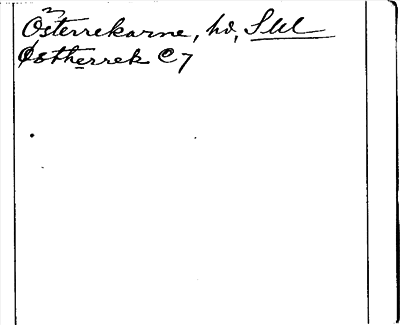 Österrekarne, hd, Sdl
Østherrek C 7